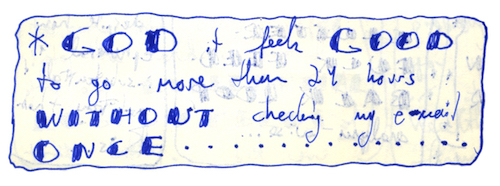 * GOD it feels GOOD
to go more then 24 hours
WITHOUT checking my e-mail
ONCE................